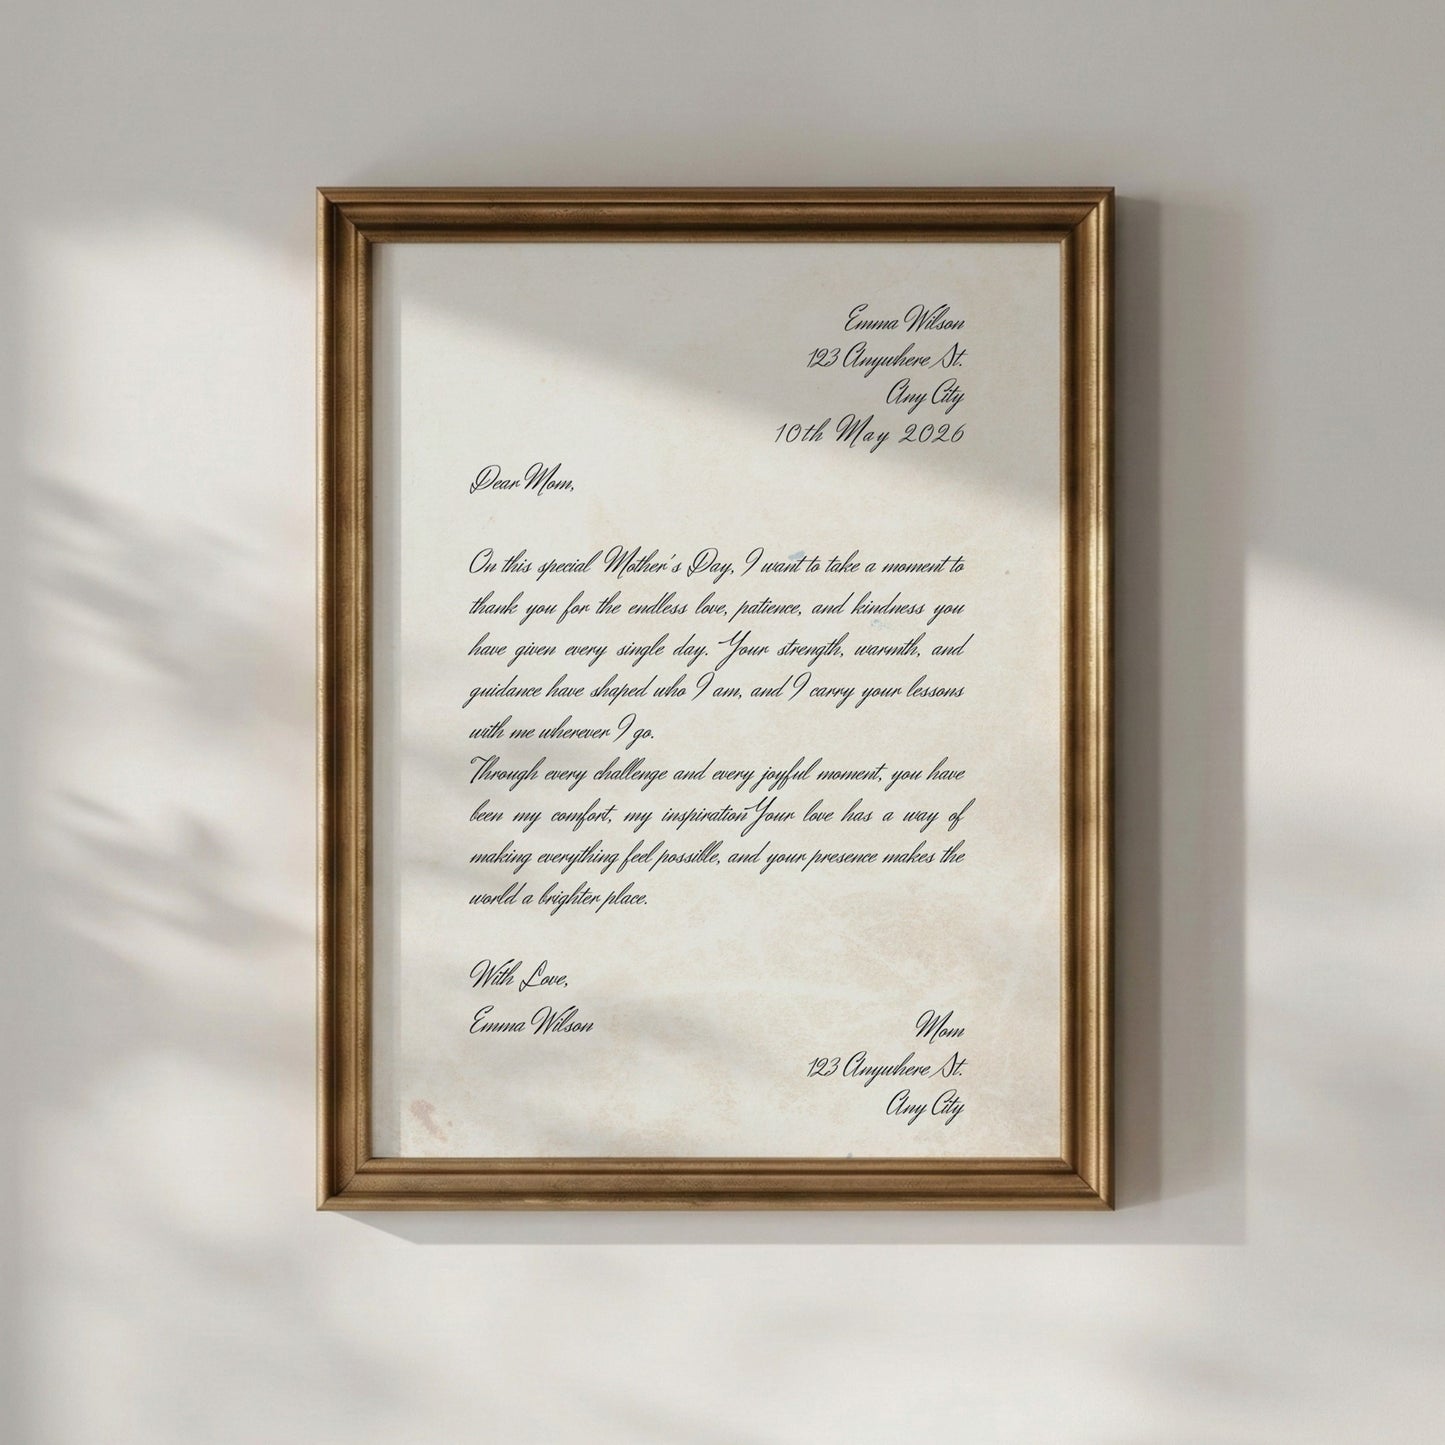 Emma Wilson
123 Anywhere St.
Any City
10th May 2026
Dear Mom,
On this special Mother's Day, I want to take a moment to
thank you for the endless love, patience, and kindness you
have given every single day. Your strength, warmth, and
guidance have shaped who I am, and I carry your lessons
with me wherever I go.
Through every challenge and every joyful moment, you have
been my comfort, my inspirationYour love has a way of
making everything feel possible, and your presence makes the
world a brighter place.
With Love,
Emma Wilson
Mom
123 Anywhere St.
Any City